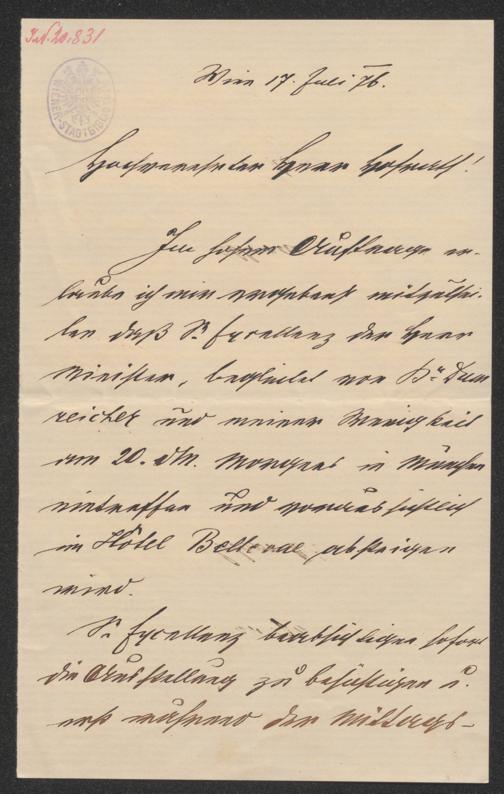 I.N. 20.831
WIENER-STADTBIBLIOTHEK
Wien 17. Juli 76.
Hochverehrter Herr Hofrath!
Im hohen Auftrage er-
laube ich mir ergebenst mitzuthei-
len daß Se Excellenz der Herr
Minister, begleitet von Br. Dum
reicher und meiner Wenigkeit
am 20. d.M. Morgens in München
eintreffen und voraussichtlich
im Hôtel Bellevue absteigen
wird.
Se. Excellenz beabsichtigen sofort
die Ausstellung zu besichtigen u.
erst während der Mittags-